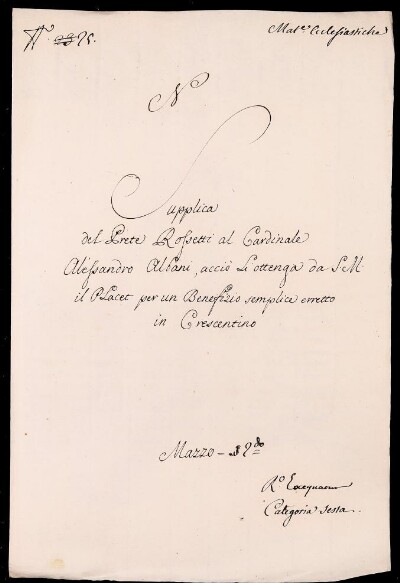 Mat.e Eclesiastiche
N
Supplica
del Prete Rossetti al Cardinale
Alessandro Albani, acciò L'ottenga da S M
il Placet per un Benefizio semplice erretto
in Crescentino
Mazzo - 2do
Categoria sesta.